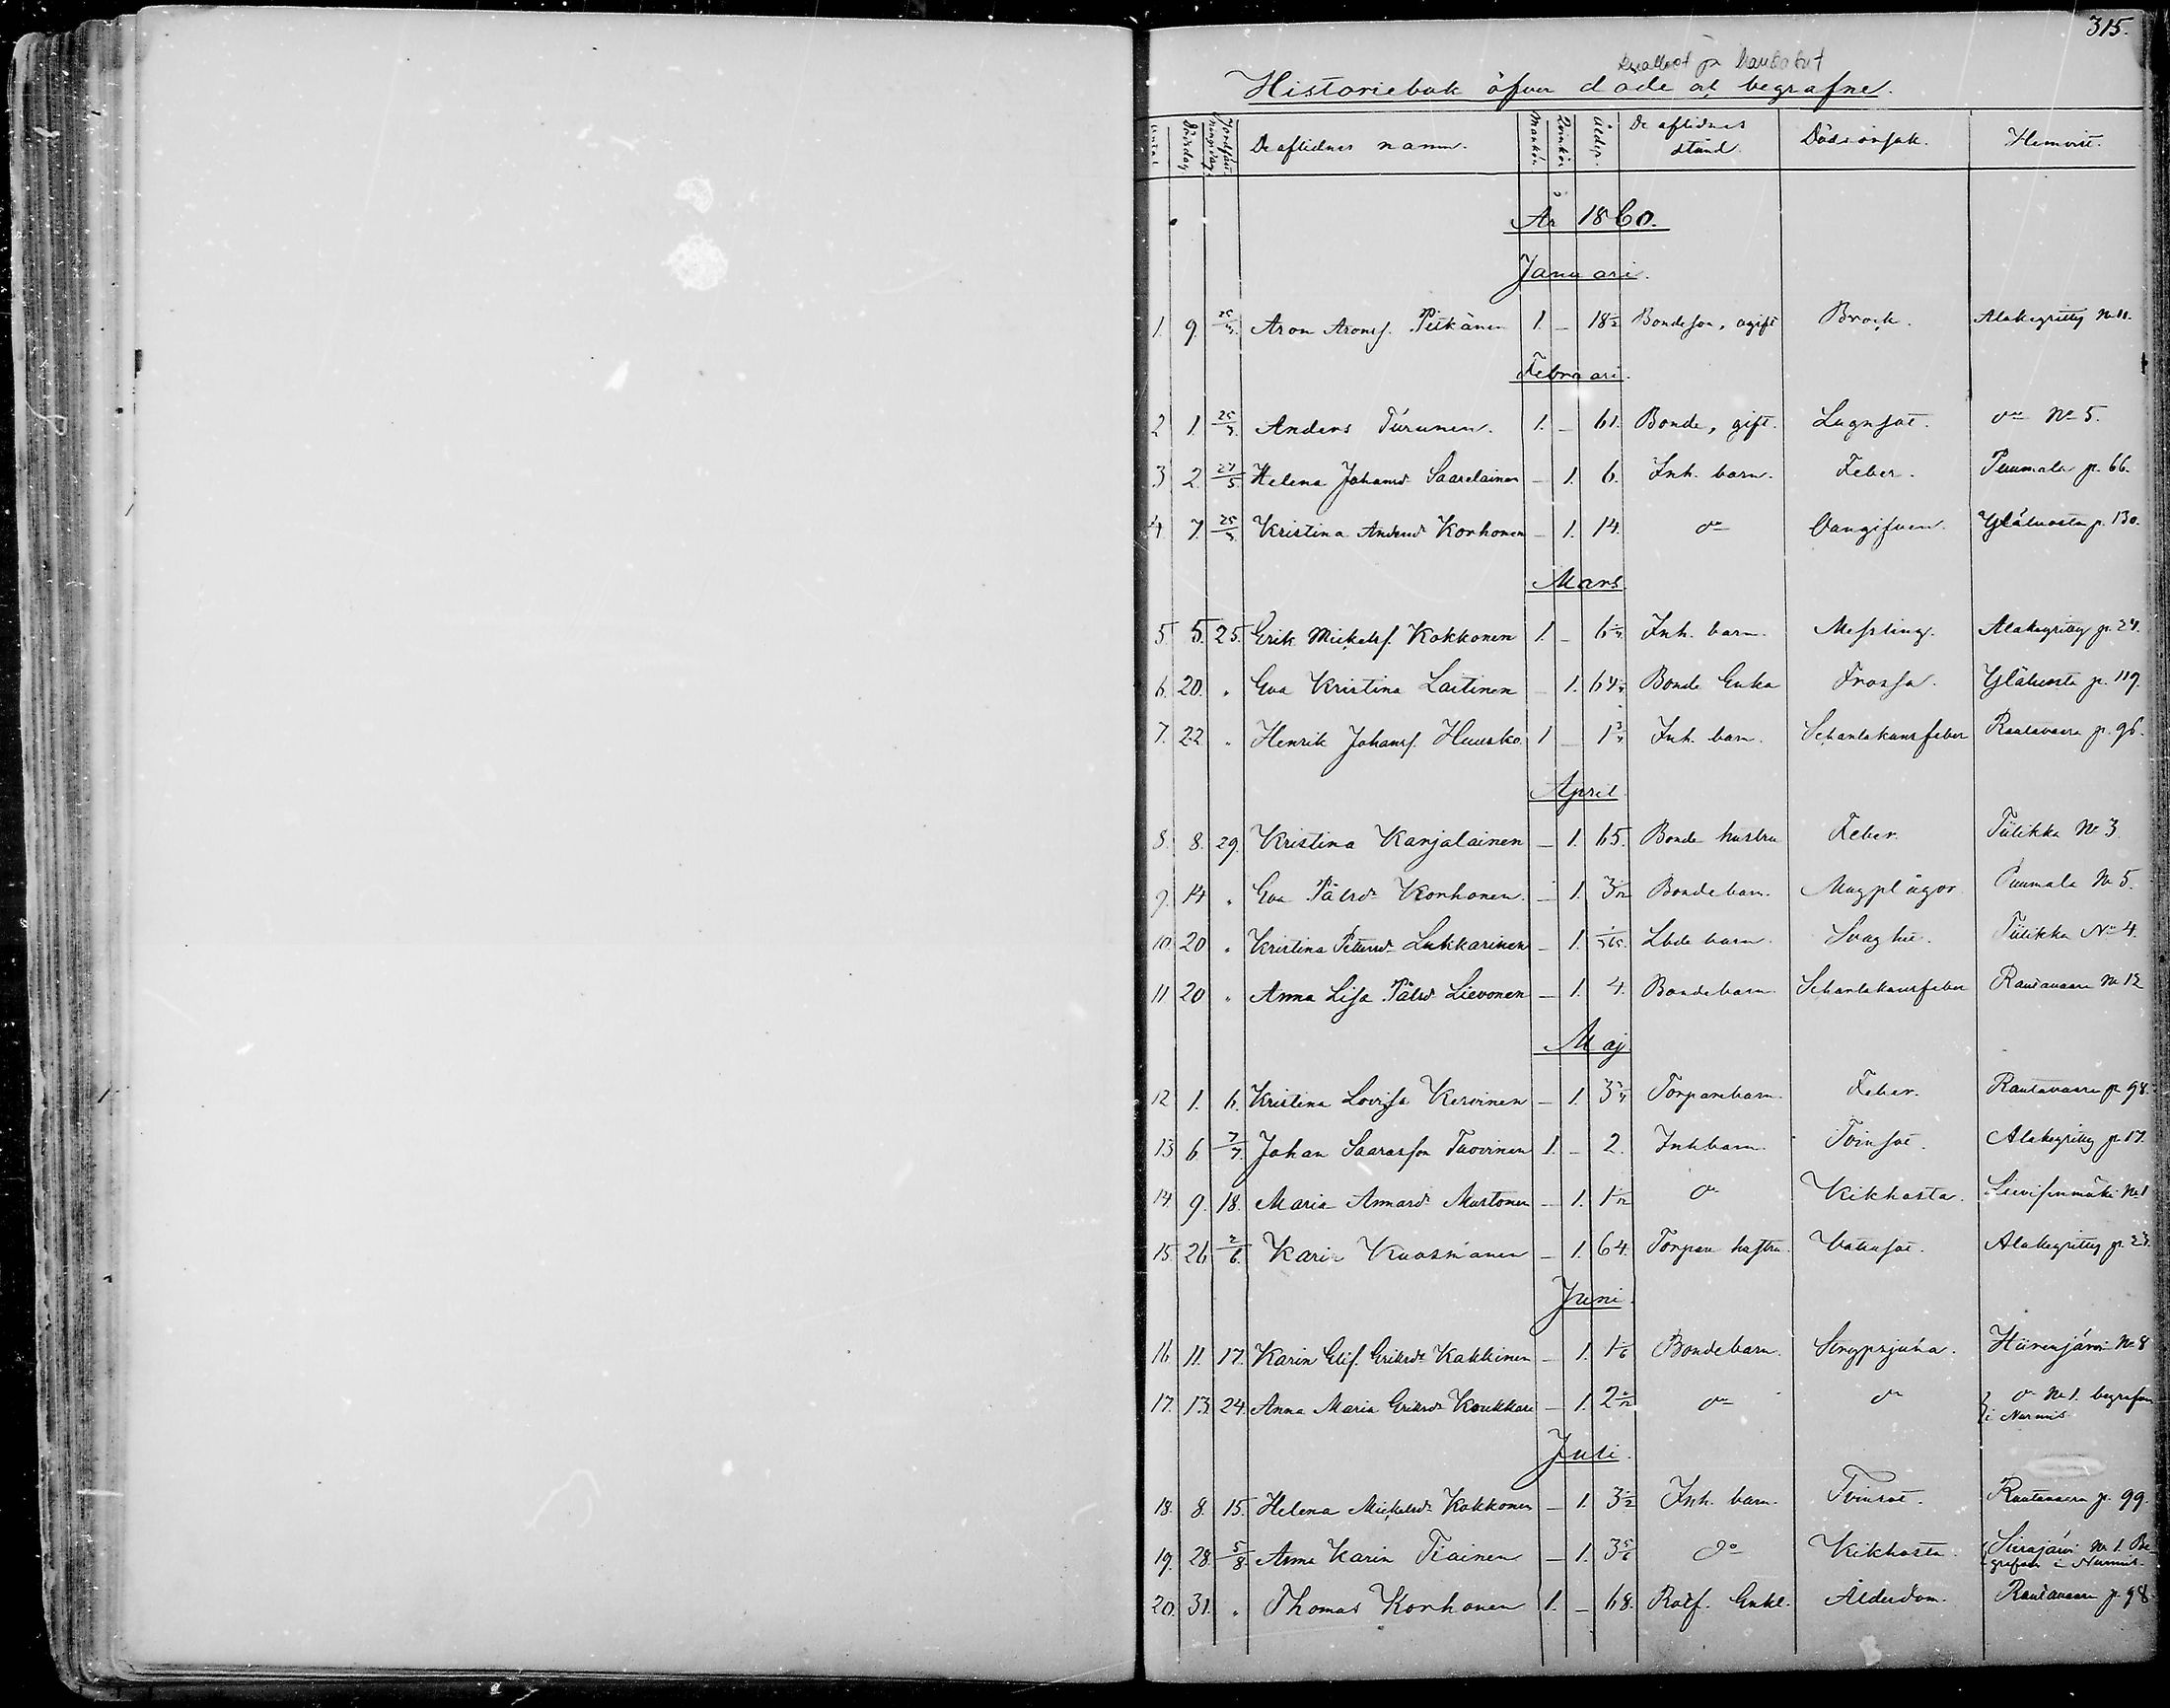 315.
kuolleet ja haudatut
Historiebok öfver döde och begrafne.
Antal Dödsdag Jordfästningsdag De aflidnes namn. Mankön. Qvinkön Ålder. De aflidnes stånd Dödsorsak. Hemvist.
År 1860.
Januari.
1. 9. Aron Aronsf. Pitkänen 1. – 18½ Bondeson, ogift Brock. Alakeyritty No 11.
Februari.
2 1. 25/3. Anders Turunen. 1. – 61. Bonde, gift. Lugnsot. do No 5.
3 2. 27/5. Helena Johansdr Saarelainen – 1. 6. Inh. barn. Feber. Puumala p. 66.
4. 7. 25/3 Kristina Andersdr Korhonen – 1. 14. do Oangifven. Yläluosta p. 130.
Mars.
5. 5. 25. Erik Mickelsf. Kokkonen 1. – Inh. barn. Messling. Alakeyritty p. 24.
6. 20. " Eva Kristina Laitinen – 1. Bonde Enka Frossa. Yläluosta p. 119.
7. 22 " Henrik Johansf. Huusko. 1 – 1¾ Inh. barn. Scharlakansfeber Rautavaara p. 96.
April.
8. 8. 29. Kristina Karjalainen – 1. 65. Bonde hustru Feber. Tiilikka No 3.
9. 14 " Eva Pålsdr Korhonen. – 1. Bondebarn. Magplågor Puumala No 5.
10. 20 " Kristina Pettersdr Lukkarinen – 1. Lbde barn. Svaghet. Tiilikka No 4.
11 20 " Anna Lisa Pålsdr Lievonen – 1. 4. Bondebarn. Scharlakansfeber Rautavaara No 12
Maj
12 1. 6. Kristina Lovisa Kervinen – 1. Torparebarn. Feber. Rautavaara p. 98.
13 6 7/7. Johan Saarasson Tuovinen 1. – 2. Inh barn. Tvinsot. Alakeyritty p. 17.
14. 9. 18. Maria Annasdr Mustonen – 1. 1 1/12 do Kikhosta. No 1
15. 26 2/6. Karin Kuosmanen – 1. 64. Torpare hustru. Vatusot. Alakeyritty p. 23.
Juni.
16 11. 17. Karin Elis. Eriksdr Kakkinen – 1. 1 1/6 Bondebarn. Strypsjuka. Hiirenjärvi No 8
17. 13. 24. Anna Maria Eriksdr Koukkari – 1. do do do No 1. begrafven i Nurmis
Juli.
18. 8. 15. Helena Mickelsdr Kokkonen – 1. 3½ Inh. barn. Tvinsot. Rautavaara p. 99.
19. 28. 5/8. Anna Karin Tiainen – 1. 3 5/6 do Kikhosta. Suurijärvi No 1. Begrafven i Nurmis.
20. 31. " Thomas Korhonen 1. – 68. Rotf. Enkl. Ålderdom. Rautavaara p. 98